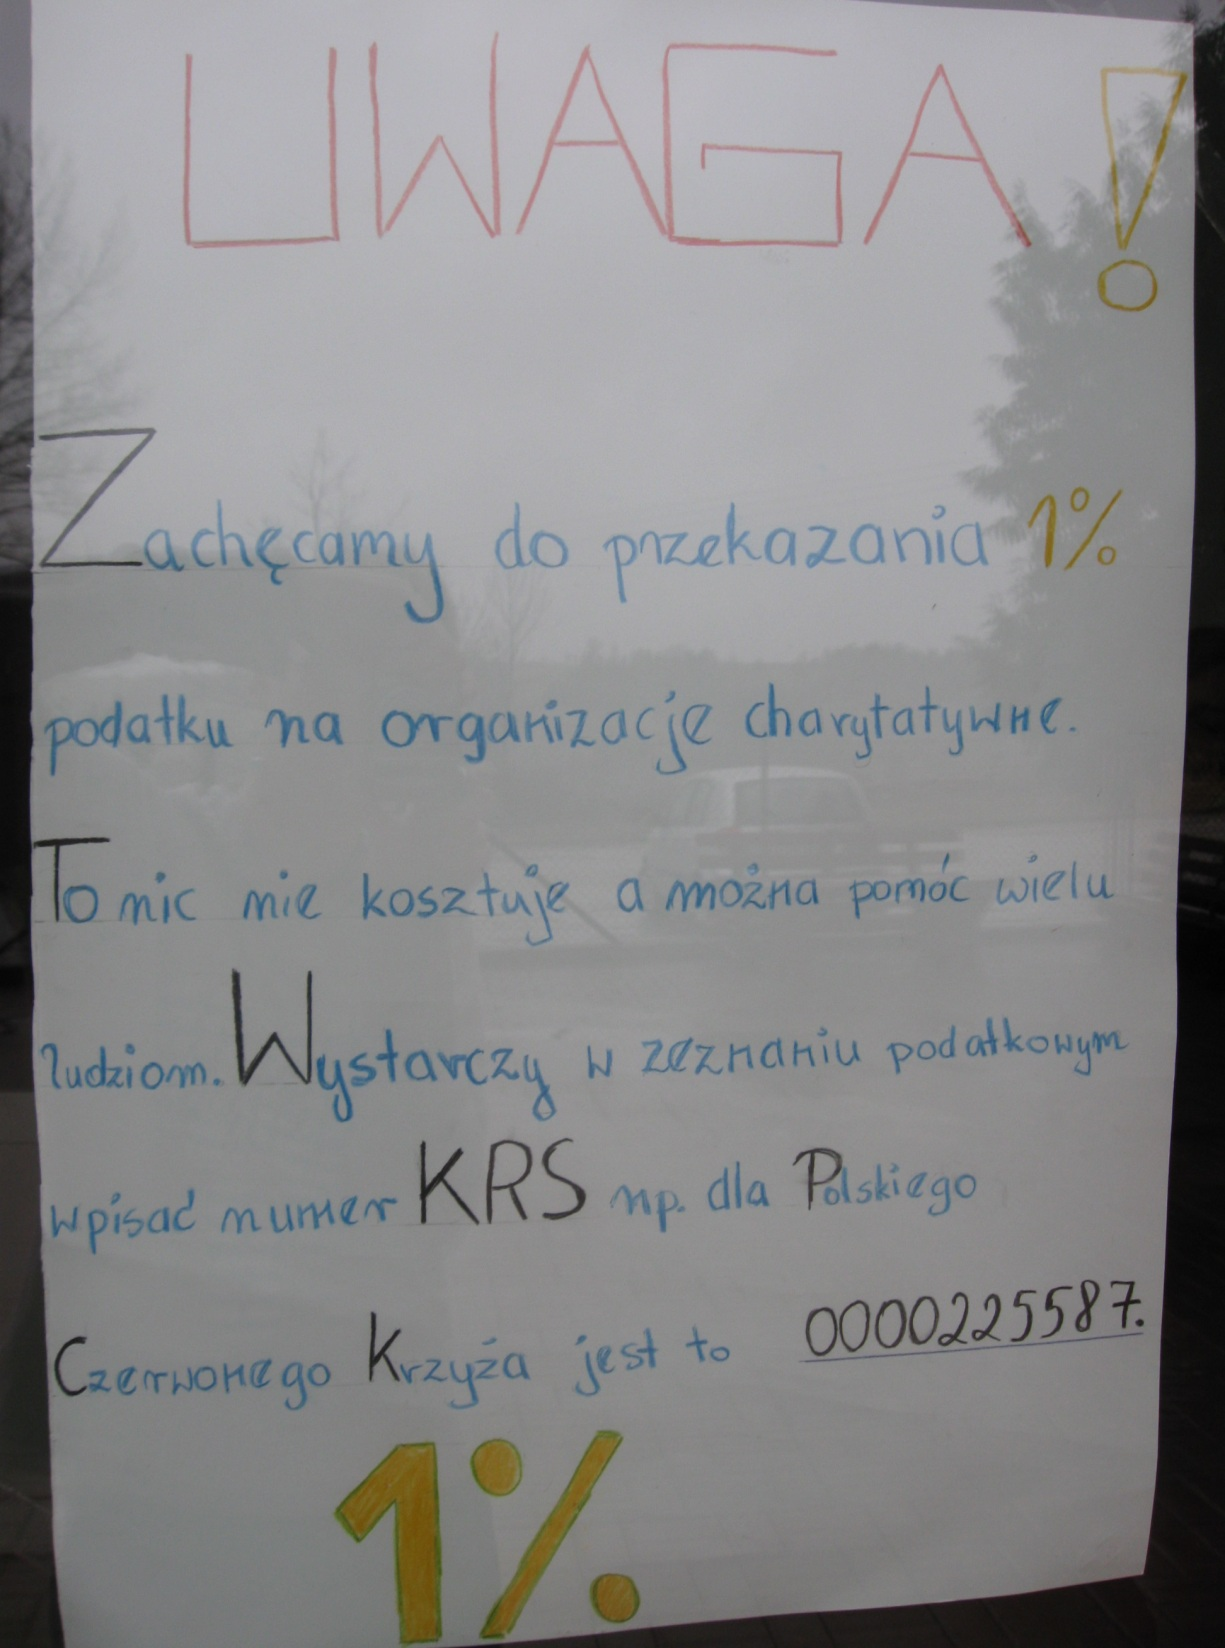 UWAGA!
Zachęcamy do przekazania 1%
podatku na organizacje charytatywne.
To nic nie kosztuje a można pomóc wielu
ludziom. Wystarczy w zeznaniu podatkowym
wpisać numer KRS np. dla Polskiego
Czerwonego Krzyża jest to 0000225587.
1%